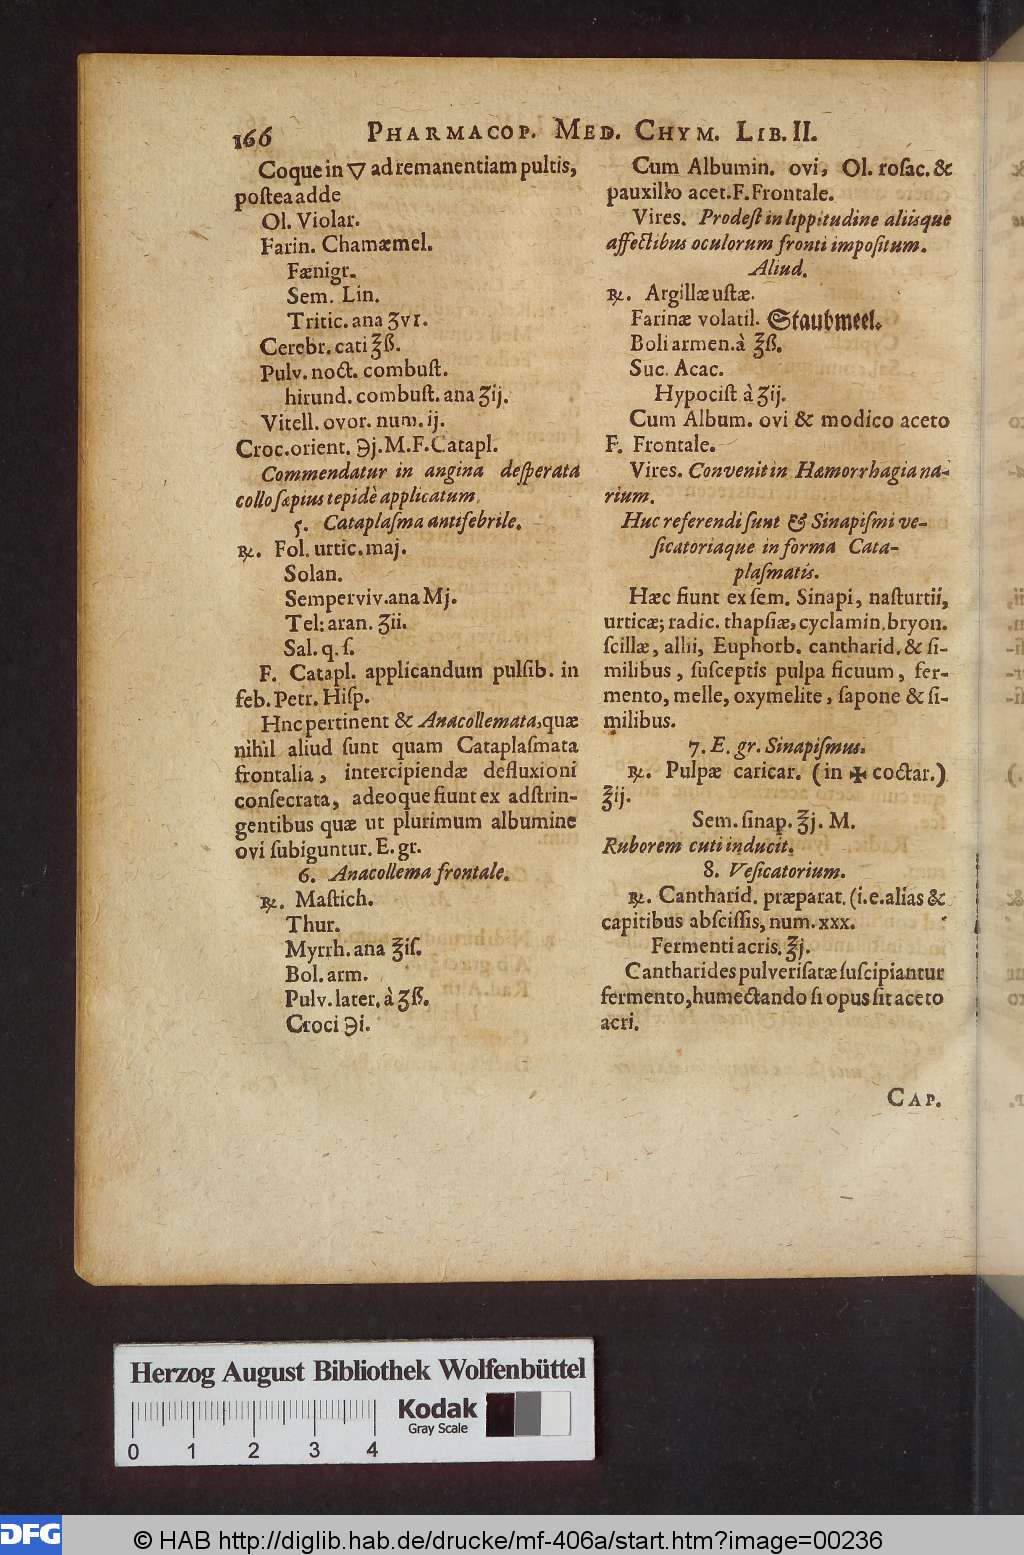 166 PHARMACOP. MED. CHYM. LIB. II.
Coque in 🜄 ad remanentiam pultis,
postea adde
Ol. Violar.
Farin. Chamæmel.
Fænigr.
Sem. Lin.
Tritic. ana ʒvı.
Cerebr. cati ℥ß.
Pulv. noct. combust.
hirund. combust. ana ʒij.
Vitell. ovor. num. ij.
Croc. orient. ℈j. M. F. Catapl.
Commendatur in angina desperata
collo sæpius tepidè applicatum.
5. Cataplaſma antifebrile.
℞. Fol. urtic. maj.
Solan.
Semperviv. ana Mj.
Tel: aran. ʒii.
Sal. q. ſ.
F. Catapl. applicandum pulſib. in
feb. Petr. Hiſp.
Huc pertinent & Anacollemata, quæ
nihil aliud ſunt quam Cataplaſmata
frontalia, intercipiendæ defluxioni
conſecrata, adeoque fiunt ex adſtrin-
gentibus quæ ut plurimum albumine
ovi ſubiguntur. E. gr.
6. Anacollema frontale.
℞. Maſtich.
Thur.
Myrrh. ana ℥iſ.
Bol. arm.
Pulv. later. à ʒß.
Croci ℈i.
Cum Albumin. ovi, Ol. roſac. &
pauxillo acet. F. Frontale.
Vires. Prodeſt in lippitudine aliisque
affectibus oculorum fronti impoſitum.
Aliud.
℞. Argillæ uſtæ.
Farinæ volatil. Staubmeel.
Boli armen. à ℥ß.
Suc. Acac.
Hypociſt à ʒij.
Cum Album. ovi & modico aceto
F. Frontale.
Vires. Convenit in Hæmorrhagia na-
rium.
Huc referendi ſunt & Sinapiſmi ve-
ſicatoriaque in forma Cata-
plaſmatis.
Hæc fiunt ex ſem. Sinapi, naſturtii,
urticæ; radic. thapſiæ, cyclamin. bryon.
ſcillæ, allii, Euphorb. cantharid. & ſi-
milibus, ſuſceptis pulpa ficuum, fer-
mento, melle, oxymelite, ſapone & ſi-
milibus.
7. E. gr. Sinapiſmus.
℞. Pulpæ caricar. (in ✠ coctar.)
℥ij.
Sem. ſinap. ℥j. M.
Ruborem cuti inducit.
8. Veſicatorium.
℞. Cantharid. præparat. (i. e. alias &
capitibus abſciſſis, num. xxx.
Fermenti acris. ℥j.
Cantharides pulveriſatæ ſuſcipiantur
fermento, humectando ſi opus ſit aceto
acri.
CAP.
Herzog August Bibliothek Wolfenbüttel
0 1 2 3 4
Kodak
Gray Scale
DFG
© HAB http://diglib.hab.de/drucke/mf-406a/start.htm?image=00236